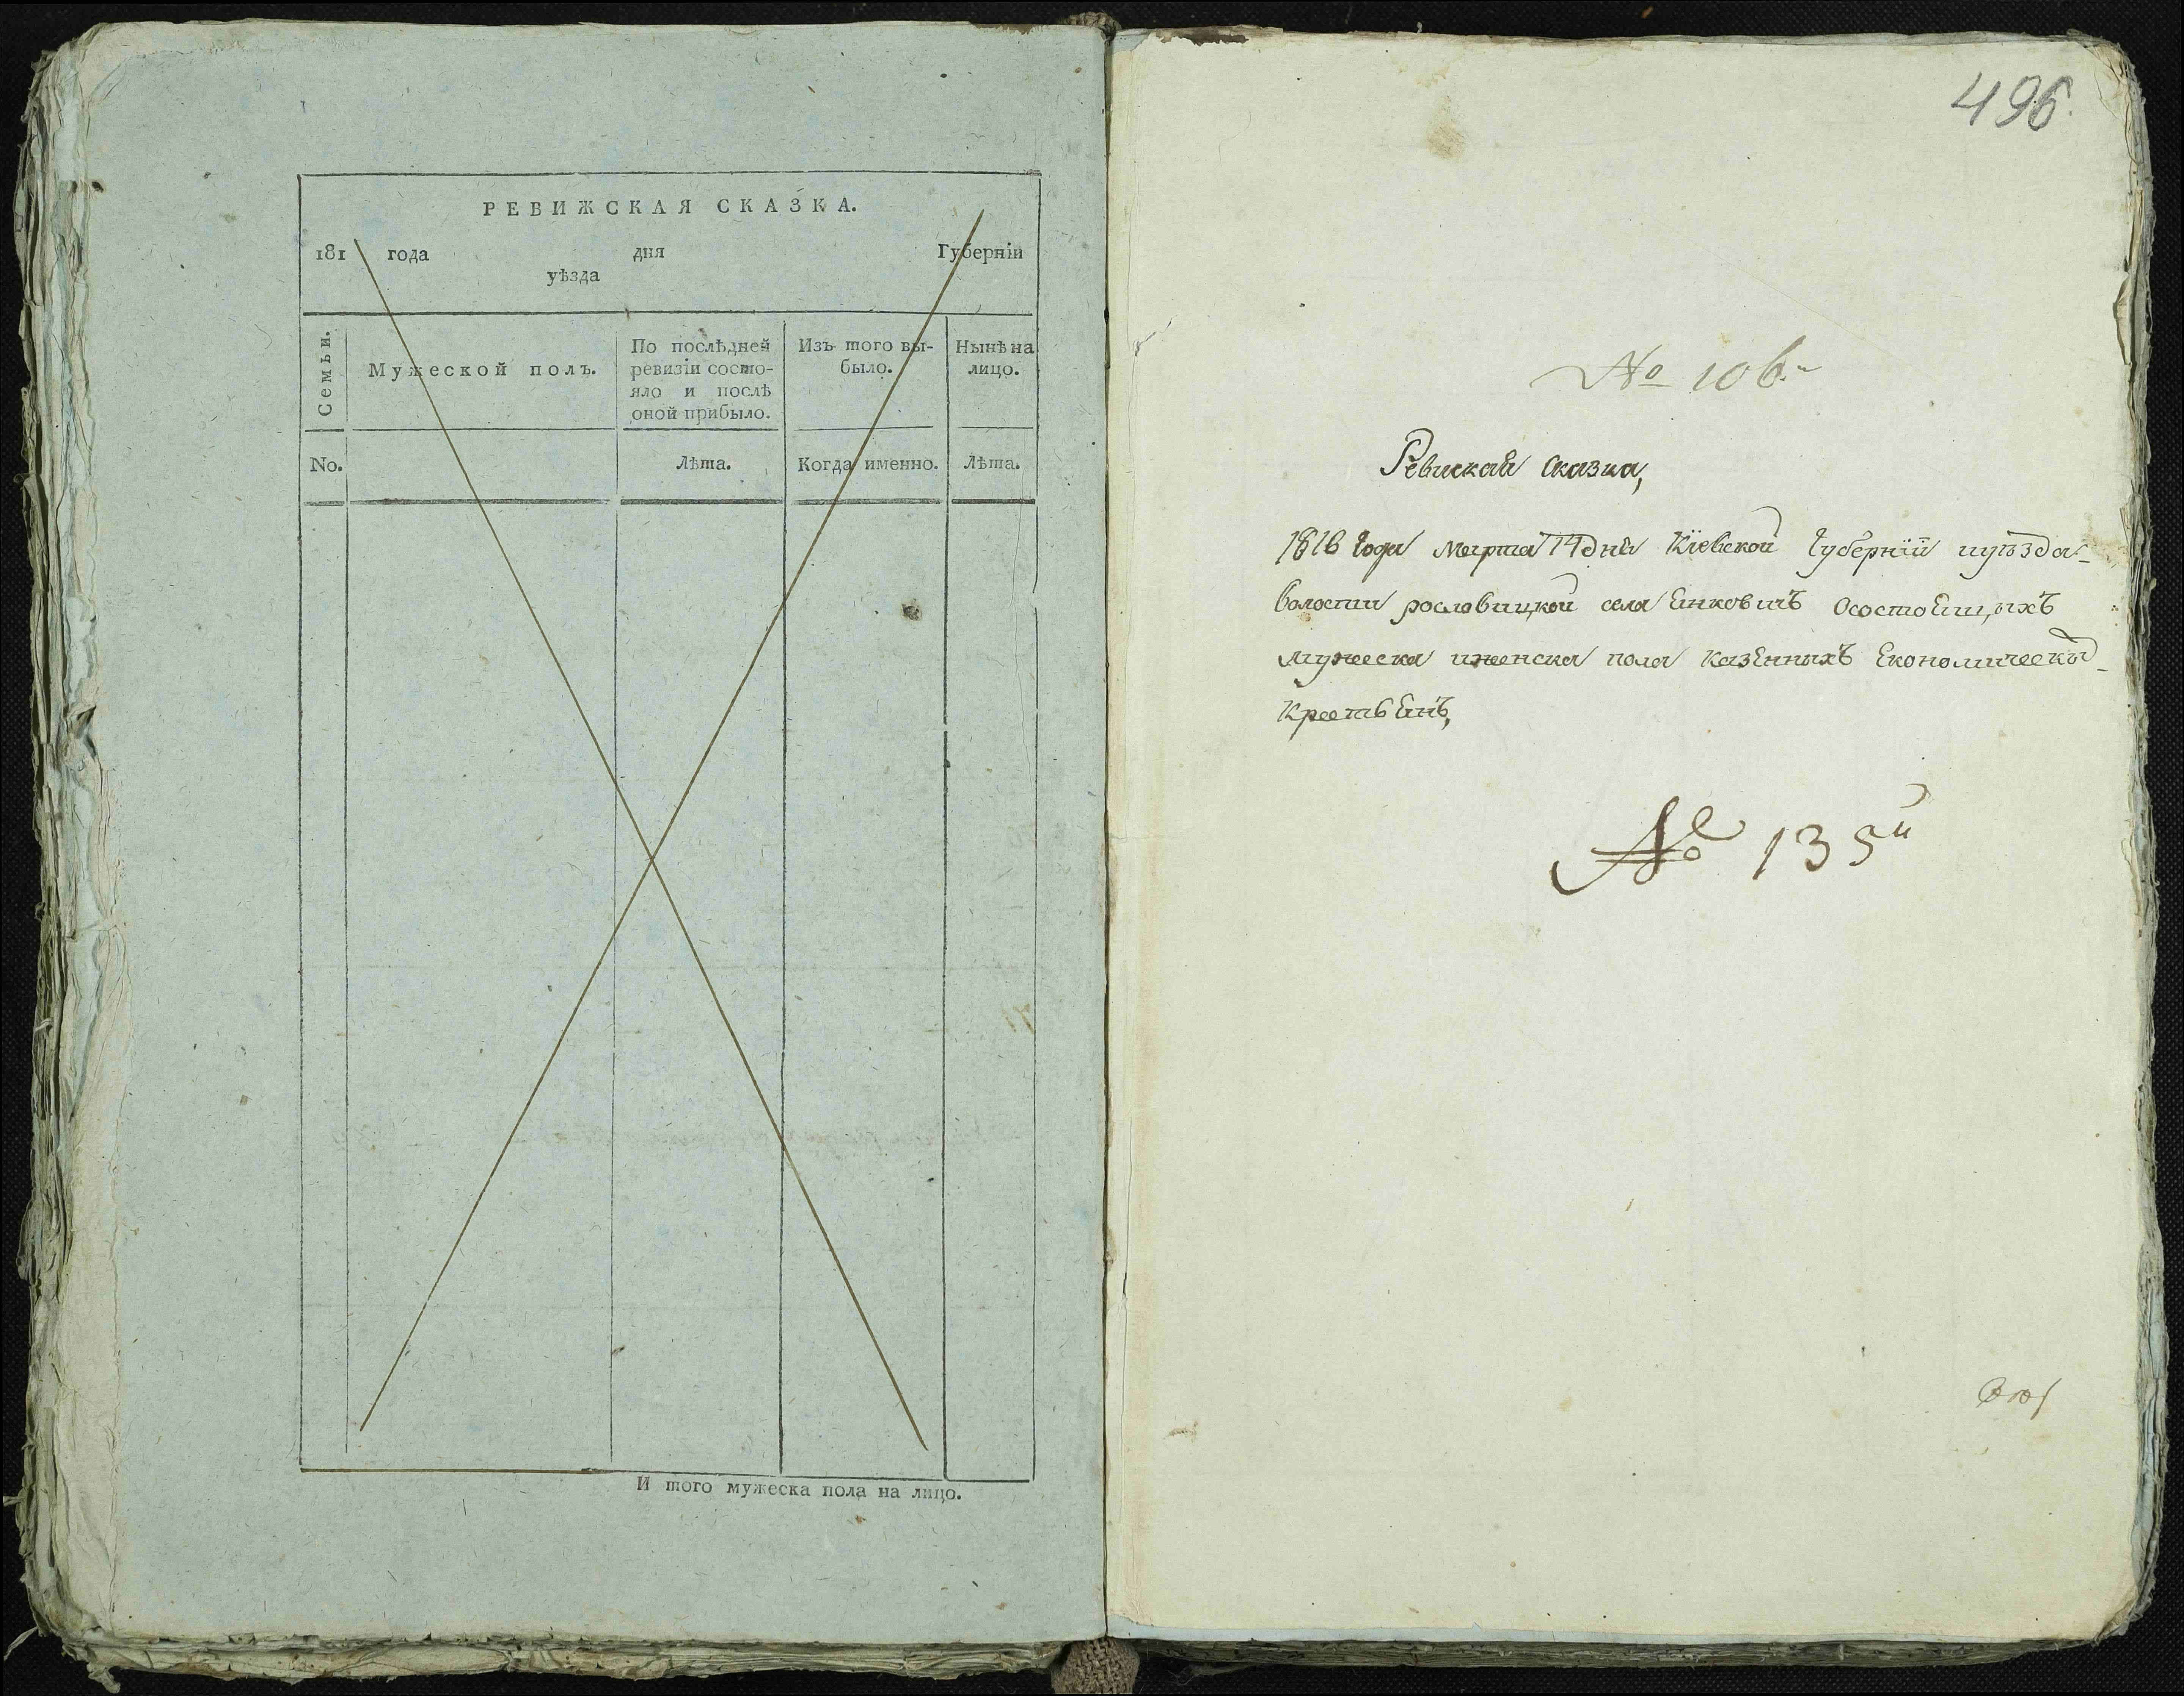 РЕВИЖСКАЯ СКАЗКА.
181 года дня Губерніи
уѣзда
Семьи.
Мужеской полъ.
По послѣдней
ревизіи состо-
яло и послѣ
оной прибыло.
Изъ того вы-
было.
Нынѣ на
лицо.
No.
Лѣта.
Когда именно.
Лѣта.
И того мужеска пола на лицо.
496.
No 106.
Ревиская Сказка,
1816 года марта 14 дня Кіевской Губерніи иуѣзда
волости рословицкой села Янковичъ Осостоящихъ
мужеска иженска пола Казенныхъ Економически
Крестьянъ,
No 135й